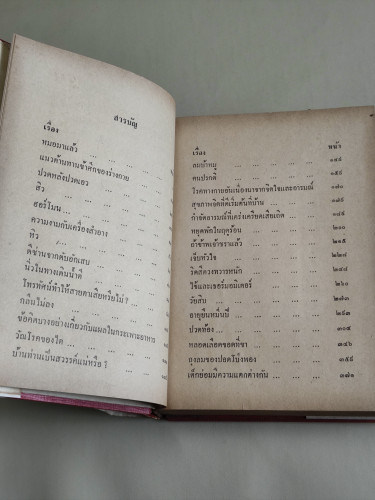 สารบัญ
เรื่อง
หมอมาแล้ว ... ... ...
แนวต้านทานข้าศึกของร่างกาย ... ...
ปวดหลังปวดเอว ... ... ...
สิว ... ... ... ...
ฮอร์โมน ... ... ... ...
ความงามกับเครื่องสำอาง ... ...
หิว ... ... ... ...
ดีซ่านจากตับอักเสบ ... ...
นิ่วในทางเดินน้ำดี ... ...
โทรทัศน์ทำให้สายตาเสียหรือไม่ ? ...
กลืนไม่ลง ... ... ...
ข้อคิดบางอย่างเกี่ยวกับแผลในกระเพาะอาหาร
วัณโรคของไต ... ... ...
บ้านท่านเป็นสวรรค์แน่หรือ ? ...
เรื่อง หน้า
ลมบ้าหมู ... ... ...
คนปรกติ ... ... ...
โรคทางกายอันเนื่องมาจากจิตใจและอารมณ์
สุขภาพจิตที่ดีเริ่มต้นที่บ้าน ...
กำจัดอารมณ์ที่เคร่งเครียดเสียเถิด
หยุดพักในฤดูร้อน ... ...
ถ้าข้าพเจ้าชราแล้ว ... ... ๒๑๕
เจ็บหัวใจ ... ... ...
ริดสีดวงทวารหนัก ... ...
ไข้และเธอร์มอมิเตอร์ ...
วัยสิบ ... ... ...
อายุยืนหมื่นปี ... ...
ปวดท้อง ... ... ... ๓๐๕
หลอดเลือดขอดที่ขา ... ...
ถุงลมของปอดโป่งพอง ... ...
เด็กย่อมมีความแตกต่างกัน ... ... ๓๗๑